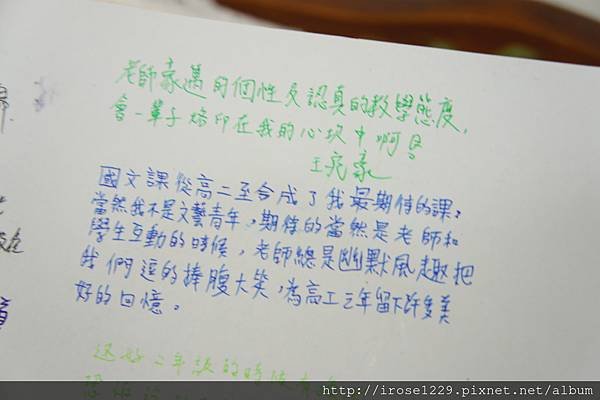 老師豪邁的個性及認真的教學態度,
會一輩子烙印在我的心坎中啊
國文課從高二至今成了我最期待的課,
當然我不是文藝青年,期待的當然是老師和
學生互動的時候,老師總是幽默風趣把
我們逗的捧腹大笑,為高工三年留下許多美
好的回憶。
還好二年級的時候
http://irose1229.pixnet.net/album